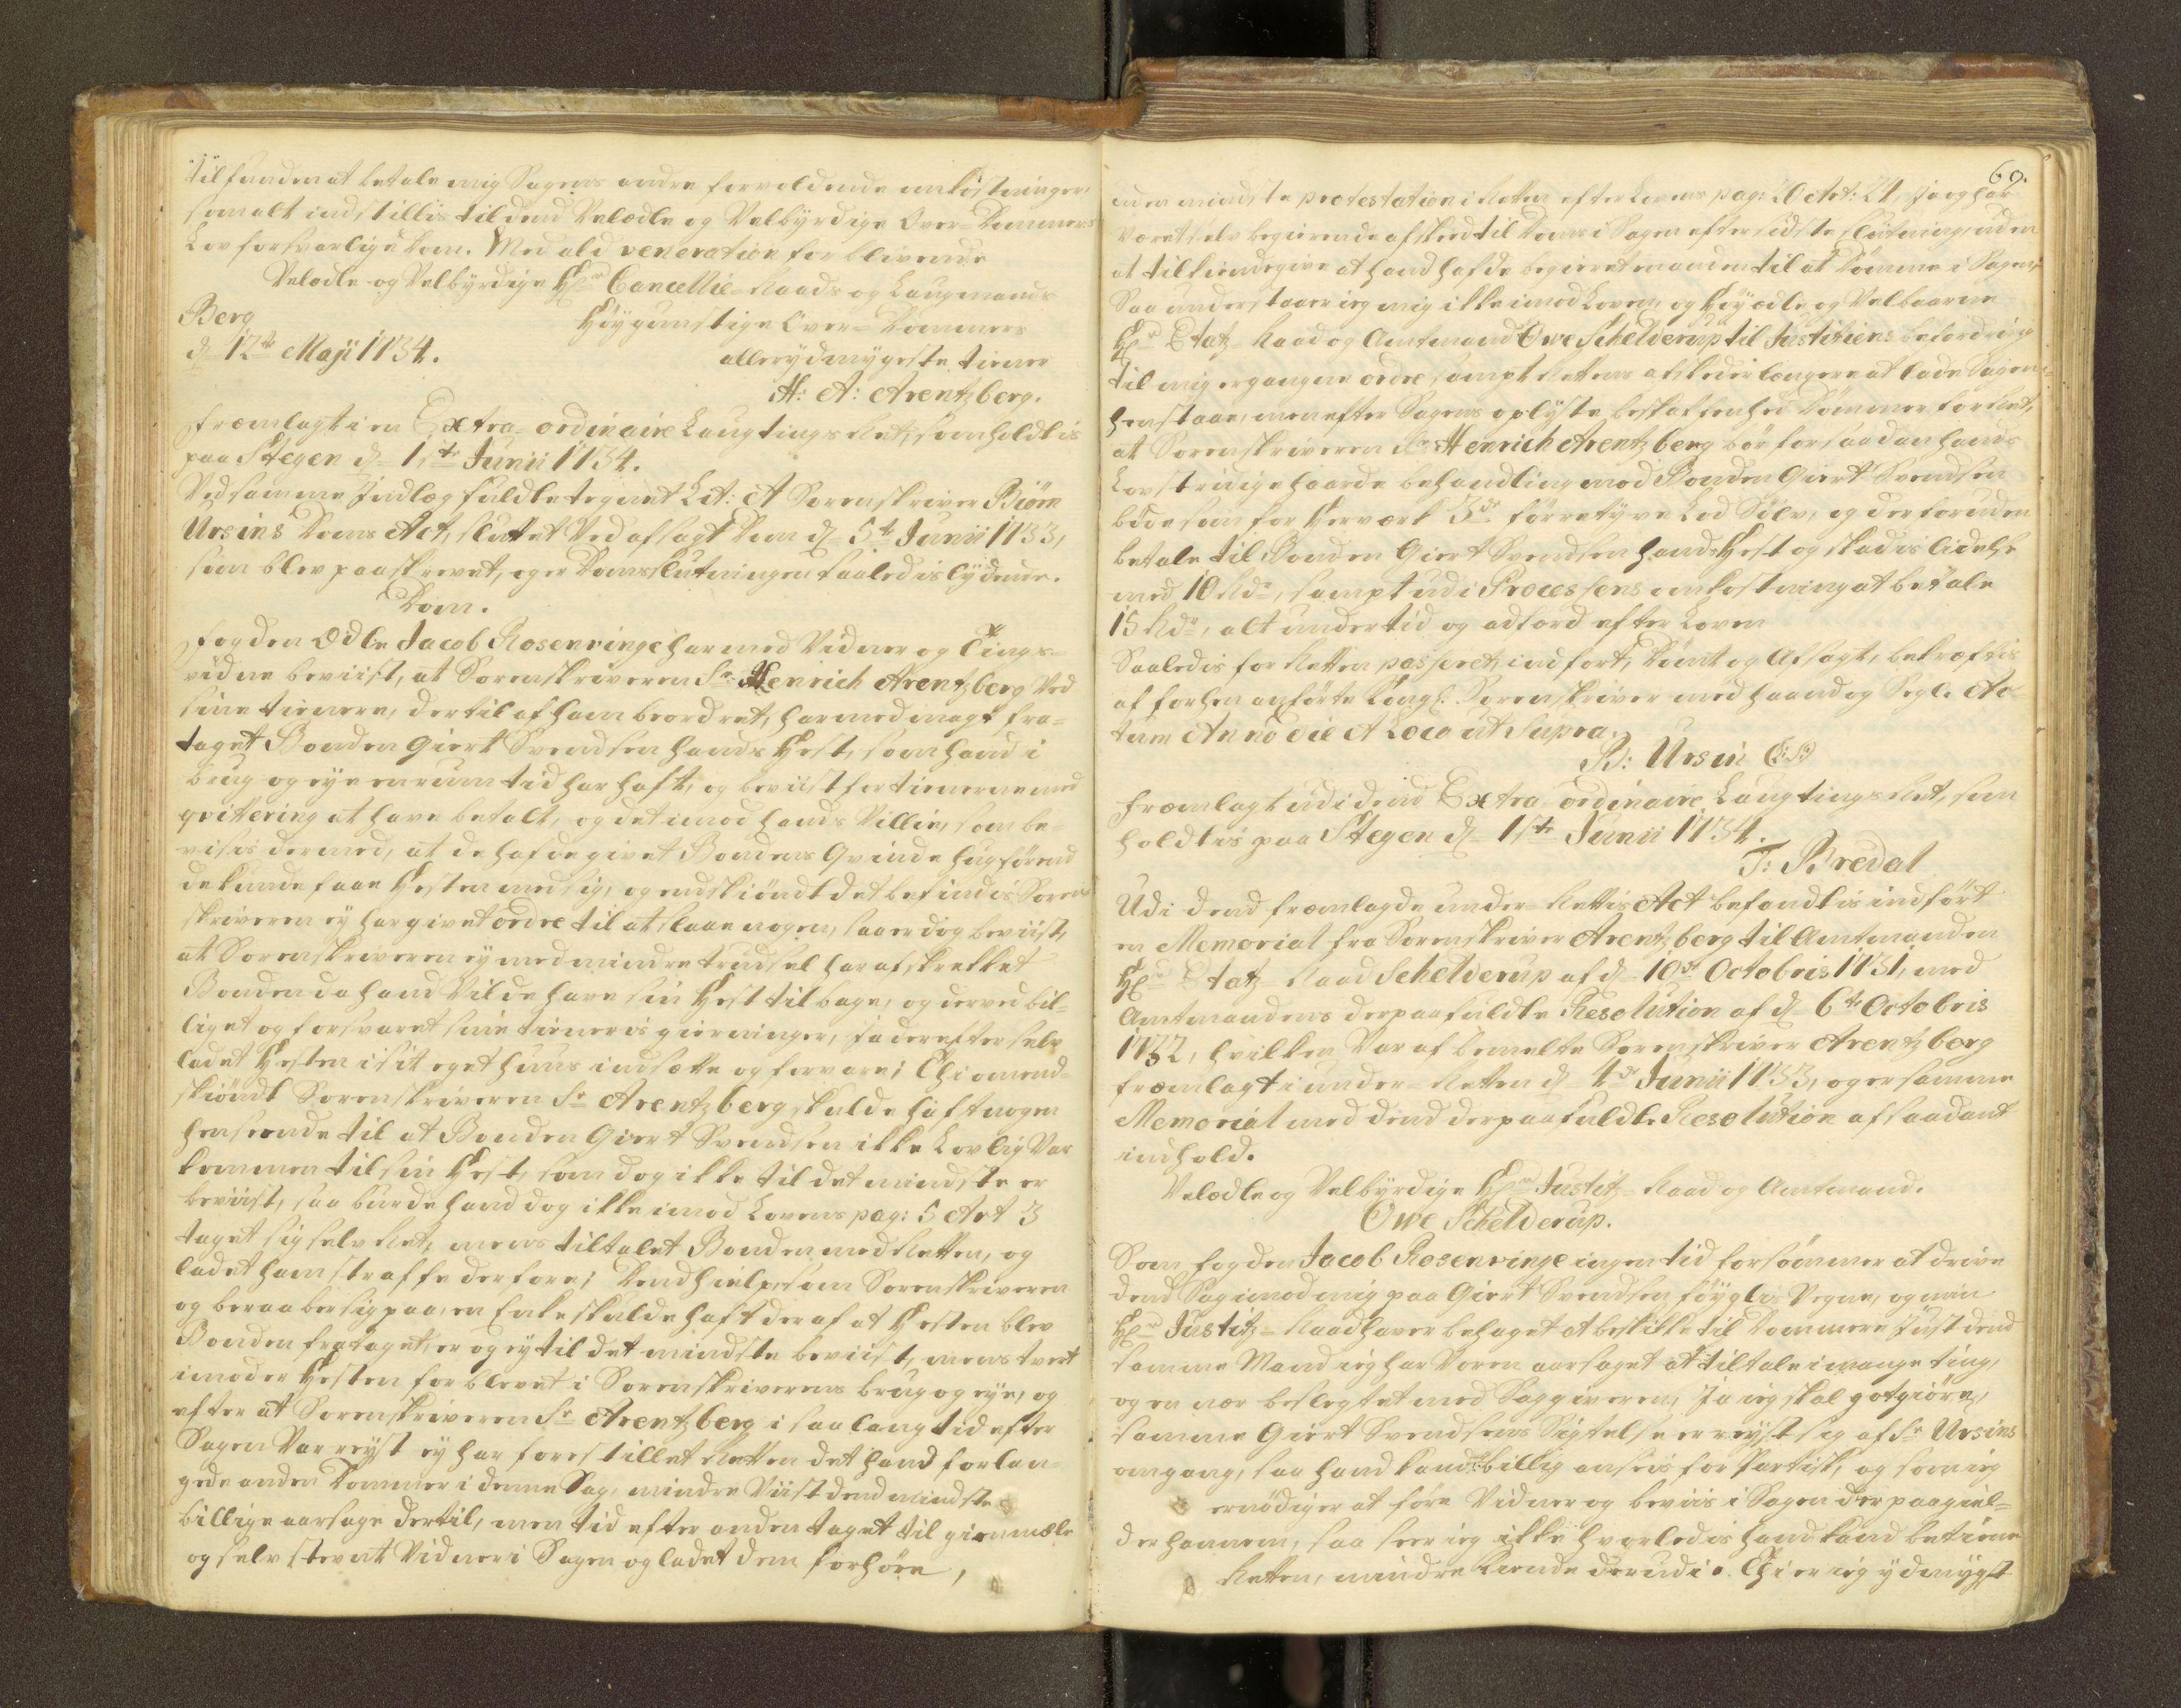 tilfunden at betale mig Sagens andre forvoldende omkostninger,
som alt indstillis til dend Velædle og Velbÿrdige Over-Dommers
Lovforsvarlige Dom. Med ald veneration forblivende
Velædle og Velbÿrdige Hr Cancellie-Raads og Laugmands
Berg
Høÿgunstige Over-Dommers
d 12te Maji 1734.
allerÿdmÿgeste tiener
H: A: Arentzberg.
Fremlagt i en Extra-ordinaire Laugtings Ret, som holdtis
paa Stegen d 1ste Junii 1734.
Ved samme Indlæg fuldte tegnet Lit: A Sorenskriver Biørn
Ursins Doms Act, sluttet Ved afsagt Dom d 5te Junii 1733,
som blev paaskrevet, og er Domsslutningen saaledis lÿdende.
Dom.
Fogden Ædle Jacob Rosenvinge har med Vidner og Tings-
vidne beviist, at Sorenskriveren Sr Henrich Arentzberg Ved
sine tienere, dertil af ham beordret, har med magt fra-
taget Bonden Giert Svendsen hands Hest, som hand i
brug og eÿe en rum tid har haft, og beviist for tienerne med
qvitering at have betalt, og det imod hands Villie, som be-
visis dermed, at de hafde givet Bondens Qvinde hug førend
de kunde faae Hesten med sig, og endskiøndt det befindis Soren-
skriveren eÿ har givet ordre til at slaae nogen, saa er dog beviist,
at Sorenskriveren eÿ med mindre trudsel har afskrekket
Bonden da hand Vilde have sin Hest tilbage, og derved bil-
liget og forsvaret sine tieneris gierninger, ja derefter selv
ladet Hesten i sit eget huus indsætte og forvare; Thi omend-
skiøndt Sorenskriveren Sr Arentzberg skulde haft nogen
henseende til at Bonden Giert Svendsen ikke Lovlig Var
kommen til sin Hest, som dog ikke til det mindste er
beviist, saa burde hand dog ikke imod Lovens pag: 5 Art 3
taget sig selv Ret, mens tiltalet Bonden med Retten, og
ladet ham straffe derfore; Dend hielp, som Sorenskriveren
og beraaber sig paa, en Enke skulde haft deraf at Hesten blev
Bonden frataget, er og eÿ til det mindste beviist, mens tvert
imod er Hesten forblevet i Sorenskriverens brug og eÿe, og
efter at Sorenskriveren Sr Arentzberg i saa lang tid efter
Sagen Var reÿst eÿ har forestillet Retten det hand forlan-
gede anden Dommer i denne Sag, mindre Viist dend mindste
billige aarsage dertil, men tid efter anden taget til gienmæle
og selv stevnt Vidner i Sagen og ladet dem forhøre,
69.
uden mindste protestation i Retten efter Lovens pag: 20 Art: 24, ja og har
Været selv begierende afskeed til Dom i Sagen efter sidste slutning, uden
at tilkiendegive at hand hafde begieret nanden til at Dømme i Sagen,
Saa understaaer ieg mig ikke imod Loven, og Høÿædle og Velbaarne
Hr Etatz-Raad og Amtmand Ove Schelderup til Justitiens befordring
til mig ergangne ordre, sampt Rettens afskeder længere at lade Sagen
henstaae, men efter Sagens oplÿste beskaffenhed Dømmer for Ret,
at Sorenskriveren Sr Henrich Arentzberg bør for saadan hands
Lovstridige haarde behandling mod Bonden Giert Svendsen
bøde som for Hærværk 3de førretÿve Lod Sølv, og der foruden
betale til Bonden Giert Svendsen hands Hest og skadis lidelse
med 10 Rdr, sampt udi Processens omkostning at betale
15 Rdr, alt under tid og adfærd efter Loven
Saaledis for Retten passeret, indført, Dømt og Afsagt, bekræftis
af forhen anførte Kongl. Sorenskriver med haand og Segl. Ac-
tum Anno die & Loco ut Supra.
B: Ursin
Fremlagt udi dend Extra ordinaire Laugtings Ret, som
holdtis paa Stegen d 1ste Junii 1734.
T: Bredal
Udi dend fremlagde under-Rettis Act befandtis indført
en Memorial fra Sorenskriver Arentzberg til Amtmanden
Hr Etatz-Raad Schelderup af d 10de Octobris 1731, med
Amtmandens derpaa fuldte Resolution af d 6te Octobris
1732, hvilken Var af bemelte Sorenskriver Arentzberg
fremlagt i under-Retten d 4de Junii 1733, og er samme
Memorial med dend derpaa fuldte Resolution af saadant
indhold.
Velædle og Velbÿrdige Hr Justitz-Raad og Amtmand.
Owe Schelderup.
Som Fogden Jacob Rosenvinge ingen tid forsømmer at drive
dend Sag imod mig paa Giert Svendsen Føÿglis Vegne, og min
Hr Justitz-Raad haver behaget at beskikke til Dommere Just dend
samme Mand ieg har Voren aarsaget at tiltale i mange ting,
og en nær beslegtet med Saggiveren, Ja ieg skal gotgiøre,
samme Giert Svendsens Sigtelse er reÿst sig af Sr Ursins
omgang, saa hand kand billig ansees for Partisk, og som ieg
ernødiger at føre Vidner og beviis i Sagen der paagiel-
der hannem, saa seer ieg ikke hvorledis hand kand betiene
Retten, mindre kiende derudi. Thi er ieg ÿdmÿgst